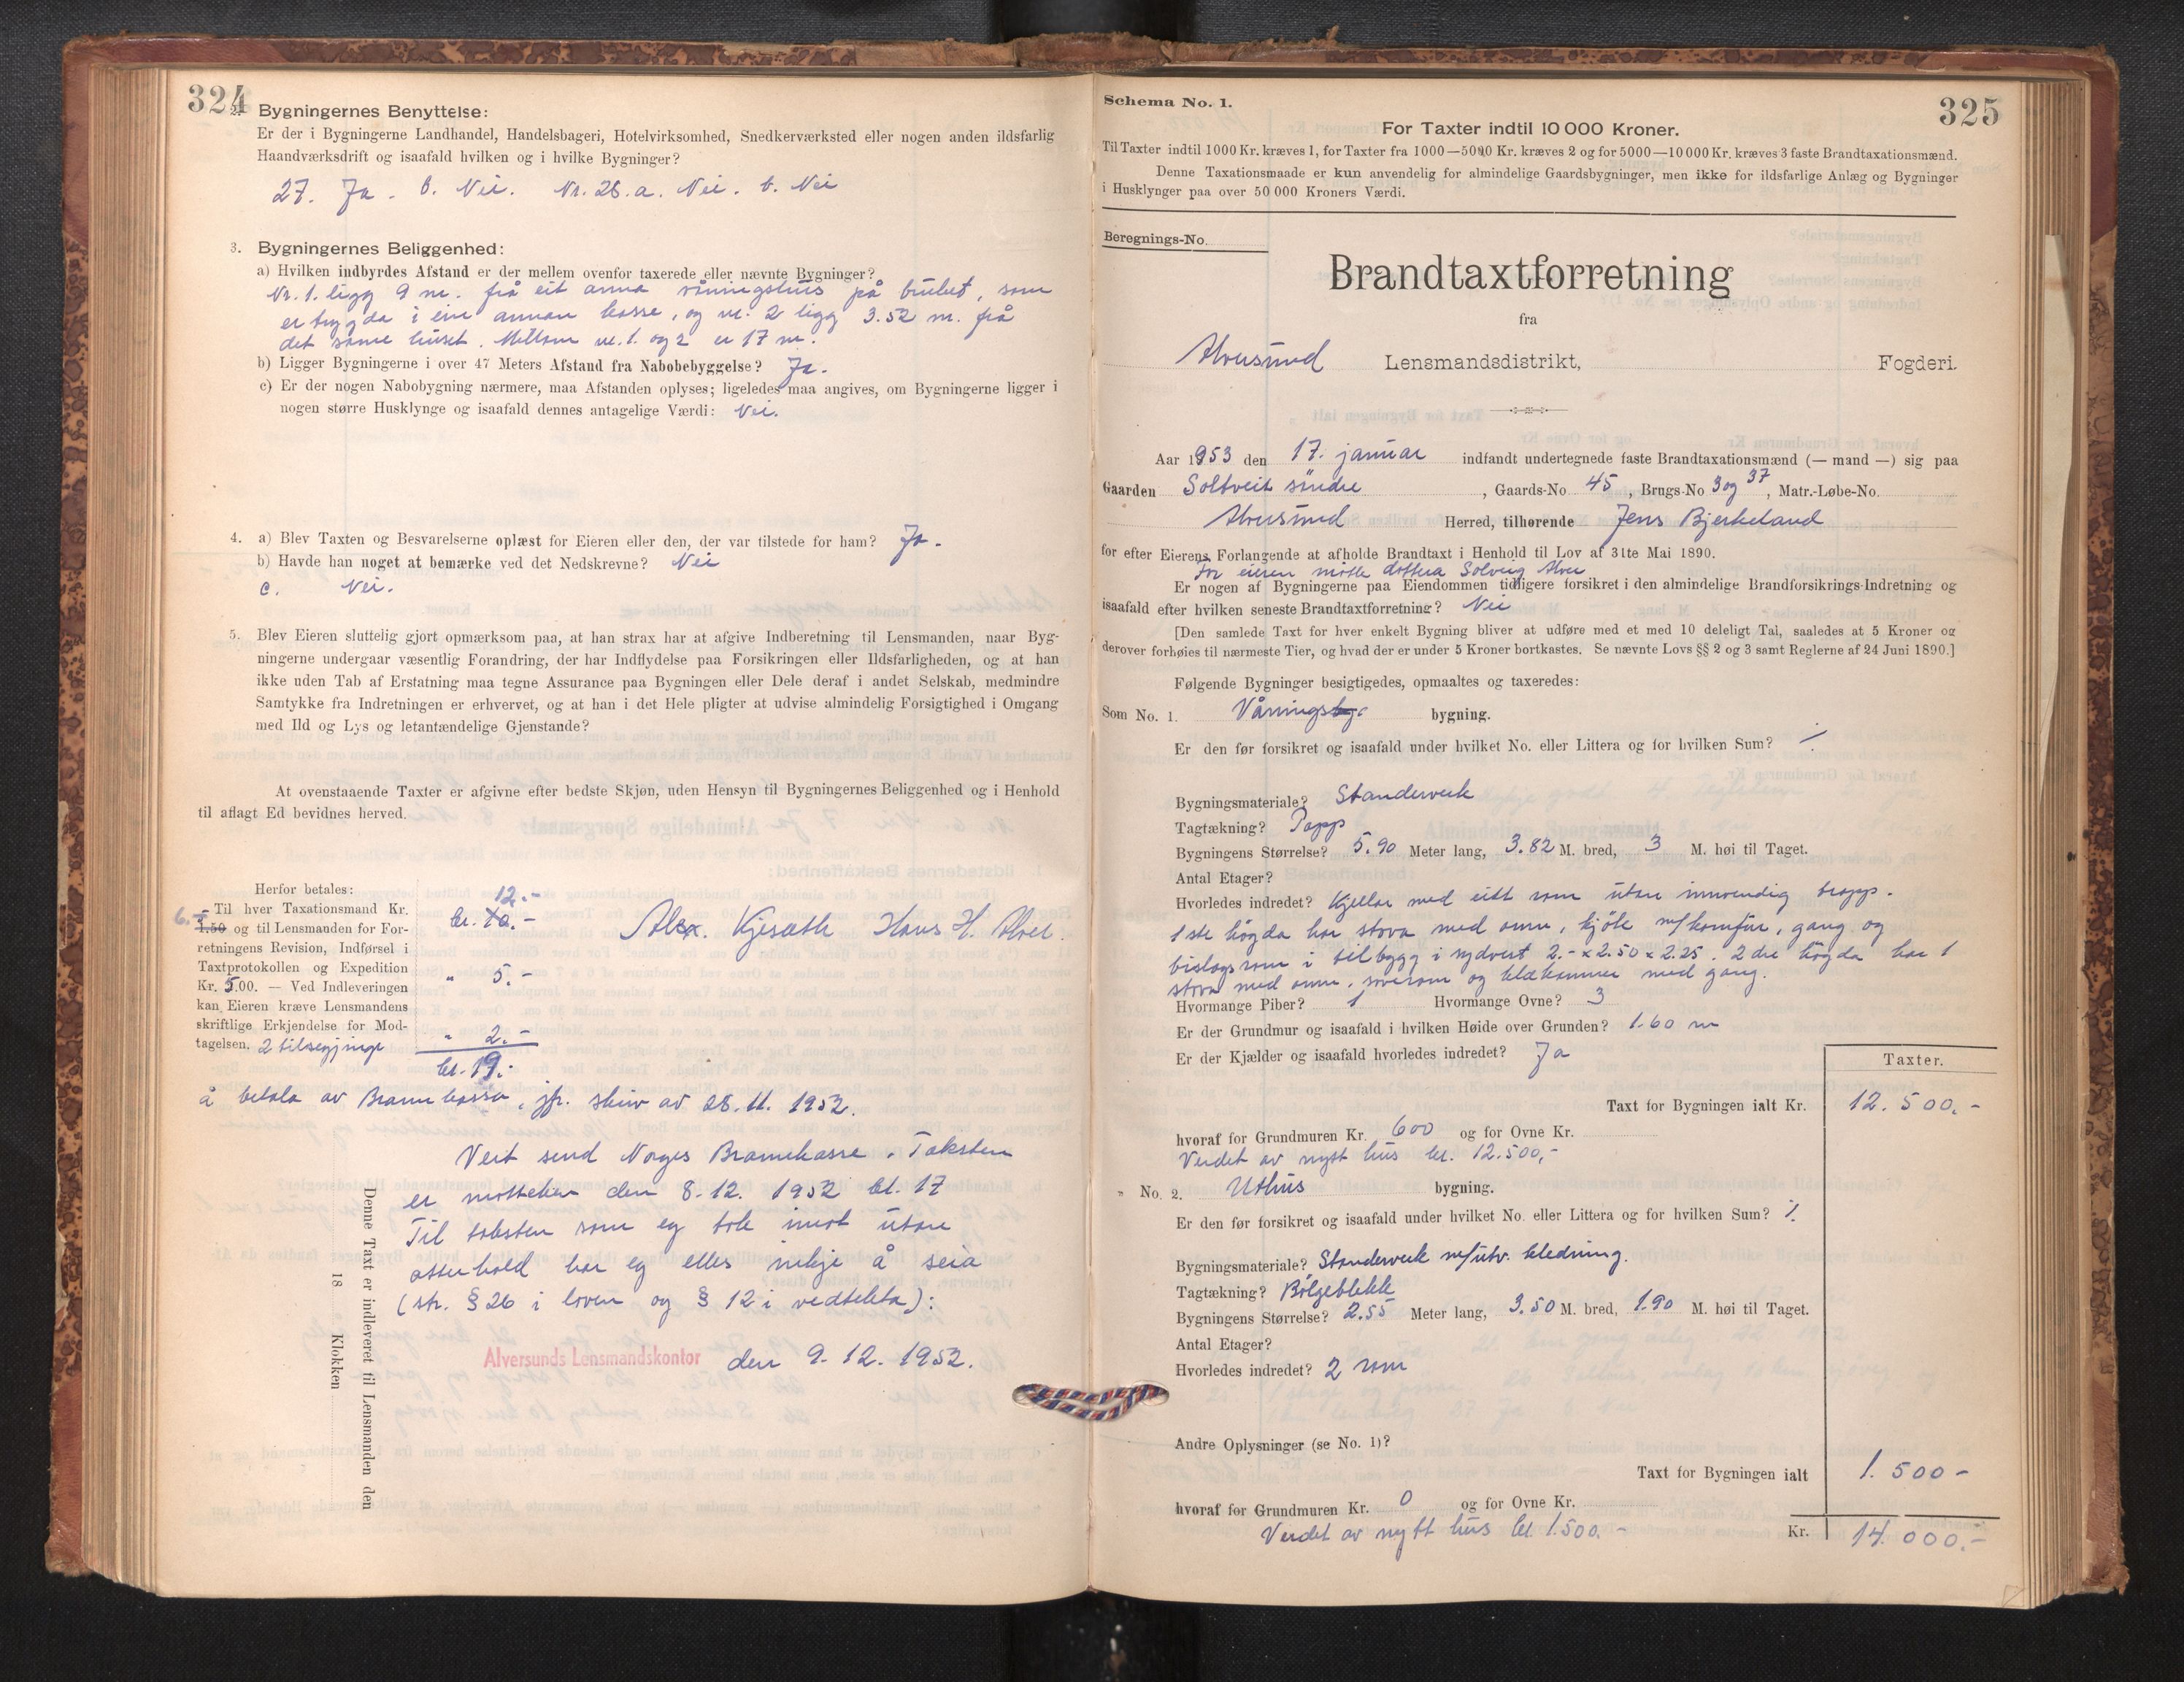 324
2. Bygningernes Benyttelse:
Er der i Bygningerne Landhandel, Handelsbageri, Hotelvirksomhed, Snedkerværksted eller nogen anden ildsfarlig
Haandværksdrift og isaafald hvilken og i hvilke Bygninger?
27. Ja. b. Nei. Nr. 28. a. Nei. b. Nei
3. Bygningernes Beliggenhed:
a) Hvilken indbyrdes Afstand er der mellem ovenfor taxerede eller nævnte Bygninger?
Nr. 1. ligg 9 m. frå eit anna våningshus på bruket, som
er trygda i ein annan kasse, og nr. 2 ligg 3.52 m. frå
det same huset. Millom nr. 1. og 2 er 17 m.
b) Ligger Bygningerne i over 47 Meters Afstand fra Nabobebyggelse? Ja.
c) Er der nogen Nabobygning nærmere, maa Afstanden oplyses; ligeledes maa angives, om Bygningerne ligger i
nogen større Husklynge og isaafald dennes antagelige Værdi: Nei.
4. a) Blev Taxten og Besvarelserne oplæst for Eieren eller den, der var tilstede for ham? Ja.
b) Havde han noget at bemærke ved det Nedskrevne? Nei
c. Nei.
5. Blev Eieren sluttelig gjort opmærksom paa, at han strax har at afgive Indberetning til Lensmanden, naar Byg-
ningerne undergaar væsentlig Forandring, der har Indflydelse paa Forsikringen eller Ildsfarligheden, og at han
ikke uden Tab af Erstatning maa tegne Assurance paa Bygningen eller Dele deraf i andet Selskab, medmindre
Samtykke fra Indretningen er erhvervet, og at han i det Hele pligter at udvise almindelig Forsigtighed i Omgang
med Ild og Lys og letantændelige Gjenstande?
At ovenstaaende Taxter er afgivne efter bedste Skjøn, uden Hensyn til Bygningernes Beliggenhed og i Henhold
til aflagt Ed bevidnes herved.
Herfor betales:
Til hver Taxationsmand Kr.
6.- 1.50 og til Lensmanden for For-
retningens Revision, Indførsel i
Taxtprotokollen og Expedition
Kr. 5.00. — Ved Indleveringen
kan Eieren kræve Lensmandens
skriftlige Erkjendelse for Mod-
tagelsen. 2 tilsegjinge
12.-
kr. 10.-
" 5.-
" 2.-
kr. 19.-
Alex. Kjesæth Hans H. Alver.
å betala av Brannkassa, jfr. skriv av 28.11.1952.
Vert send Norges Brannkasse. Taksten
er motteken den 8.12.1952 kl. 17
Til taksten som eg tok imot utan
atterhald har eg elles inkje å seia
(str. § 26 i loven og § 12 i vedtekta):
Alversunds Lensmandskontor den 9.12.1952.
Denne Taxt er indleveret til Lensmanden den
18 Klokken
325
Schema No. 1.
For Taxter indtil 10 000 Kroner.
Til Taxter indtil 1000 Kr. kræves 1, for Taxter fra 1000—5000 Kr. kræves 2 og for 5000—10 000 Kr. kræves 3 faste Brandtaxationsmænd.
Denne Taxationsmaade er kun anvendelig for almindelige Gaardsbygninger, men ikke for ildsfarlige Anlæg og Bygninger
i Husklynger paa over 50 000 Kroners Værdi.
Beregnings-No.
Brandtaxtforretning
fra
Alversund Lensmandsdistrikt, Fogderi.
Aar 1953 den 17. januar indfandt undertegnede faste Brandtaxationsmænd (— mand —) sig paa
Gaarden Soltveit söndre, Gaards-No 45, Brugs-No 3 og 37, Matr.-Løbe-No.
Alversund Herred, tilhørende Jens Bjerkeland
for efter Eierens Forlangende at afholde Brandtaxt i Henhold til Lov af 31te Mai 1890.
For eieren møtte dottera Solveig Alver
Er nogen af Bygningerne paa Eiendommen tidligere forsikret i den almindelige Brandforsikrings-Indretning og
isaafald efter hvilken seneste Brandtaxtforretning? Nei
[Den samlede Taxt for hver enkelt Bygning bliver at udføre med et med 10 deleligt Tal, saaledes at 5 Kroner og
derover forhøies til nærmeste Tier, og hvad der er under 5 Kroner bortkastes. Se nævnte Lovs §§ 2 og 3 samt Reglerne af 24 Juni 1890.]
Følgende Bygninger besigtigedes, opmaaltes og taxeredes:
Som No. 1. Våningsbyg bygning.
Er den før forsikret og isaafald under hvilket No. eller Littera og for hvilken Sum? ./.
Bygningsmateriale? Standerverk
Tagtækning? Papp
Bygningens Størrelse? 5.90 Meter lang, 3.82 M. bred, 3 M. høi til Taget.
Antal Etager?
Hvorledes indredet? Kjellar med eitt rom utan innvendig trapp.
1ste högda har stova med omn, kjök m/komfur, gang og
bislagsrom i tilbygg i nydvest 2.- x 2.50 x 2.25. 2dre högda har 1
stova med omn, soverom og kledkammer med gang.
Hvormange Piber? 1 Hvormange Ovne? 3
Er der Grundmur og isaafald i hvilken Høide over Grunden? 1.60 m
Er der Kjælder og isaafald hvorledes indredet? Ja
Taxter.
Taxt for Bygningen ialt Kr. 12.500.-
hvoraf for Grundmuren Kr. 600 og for Ovne Kr.
Verdet av nytt hus kr. 12.500,-
" No. 2. Uthus bygning.
Er den før forsikret og isaafald under hvilket No. eller Littera og for hvilken Sum? ./.
Bygningsmateriale? Standerverk m/utv. kledning.
Tagtækning? Bölgeblekk
Bygningens Størrelse? 2.55 Meter lang, 3.50 M. bred, 1.90 M. høi til Taget.
Antal Etager?
Hvorledes indredet? 2 rom
Andre Oplysninger (se No. 1)?
Taxt for Bygningen ialt 1.500-
hvoraf for Grundmuren Kr. 0 og for Ovne Kr.
Verdet av nytt hus kr 1.500.-
Kr. 14.000.-